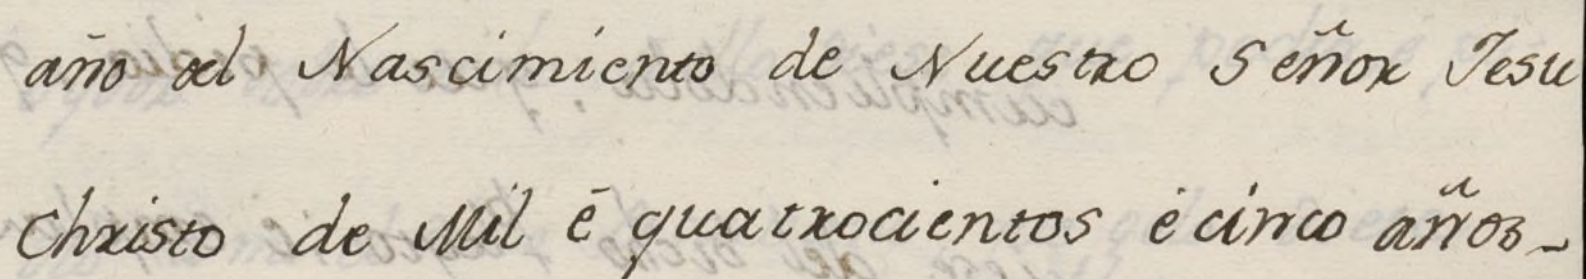 año del Nascimiento de Nuestro Señor Jesu
Christo de Mil é quatrocientos é cinco años_